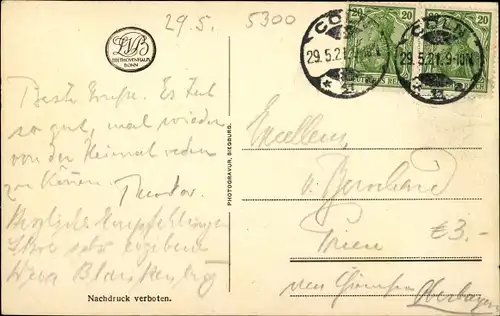 29.5.
5300
LVB
BEETHOVENHAUS
BONN
CÖLN
29.5.21.9-10V.
20
20
DEUTSCHES REICH
20
CÖLN
29.5.21.9-10V.
Beste Grüße. Es tut
so gut, mal wieder
von der Heimat reden
zu können. Theodor.
Herzliche Empfehlungen
Ihre sehr ergebene
Blankenburg
Nachdruck verboten.
PHOTOGRAVUR, SIEGBURG.
Exzellenz
v. Bernhard
Prien
€3.-
am Chiemsee
Oberbayern